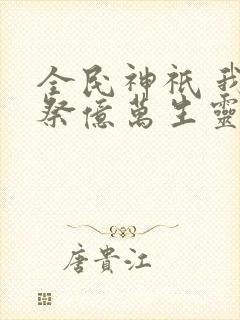 全民神祇 我
祭億萬生靈
唐貴江